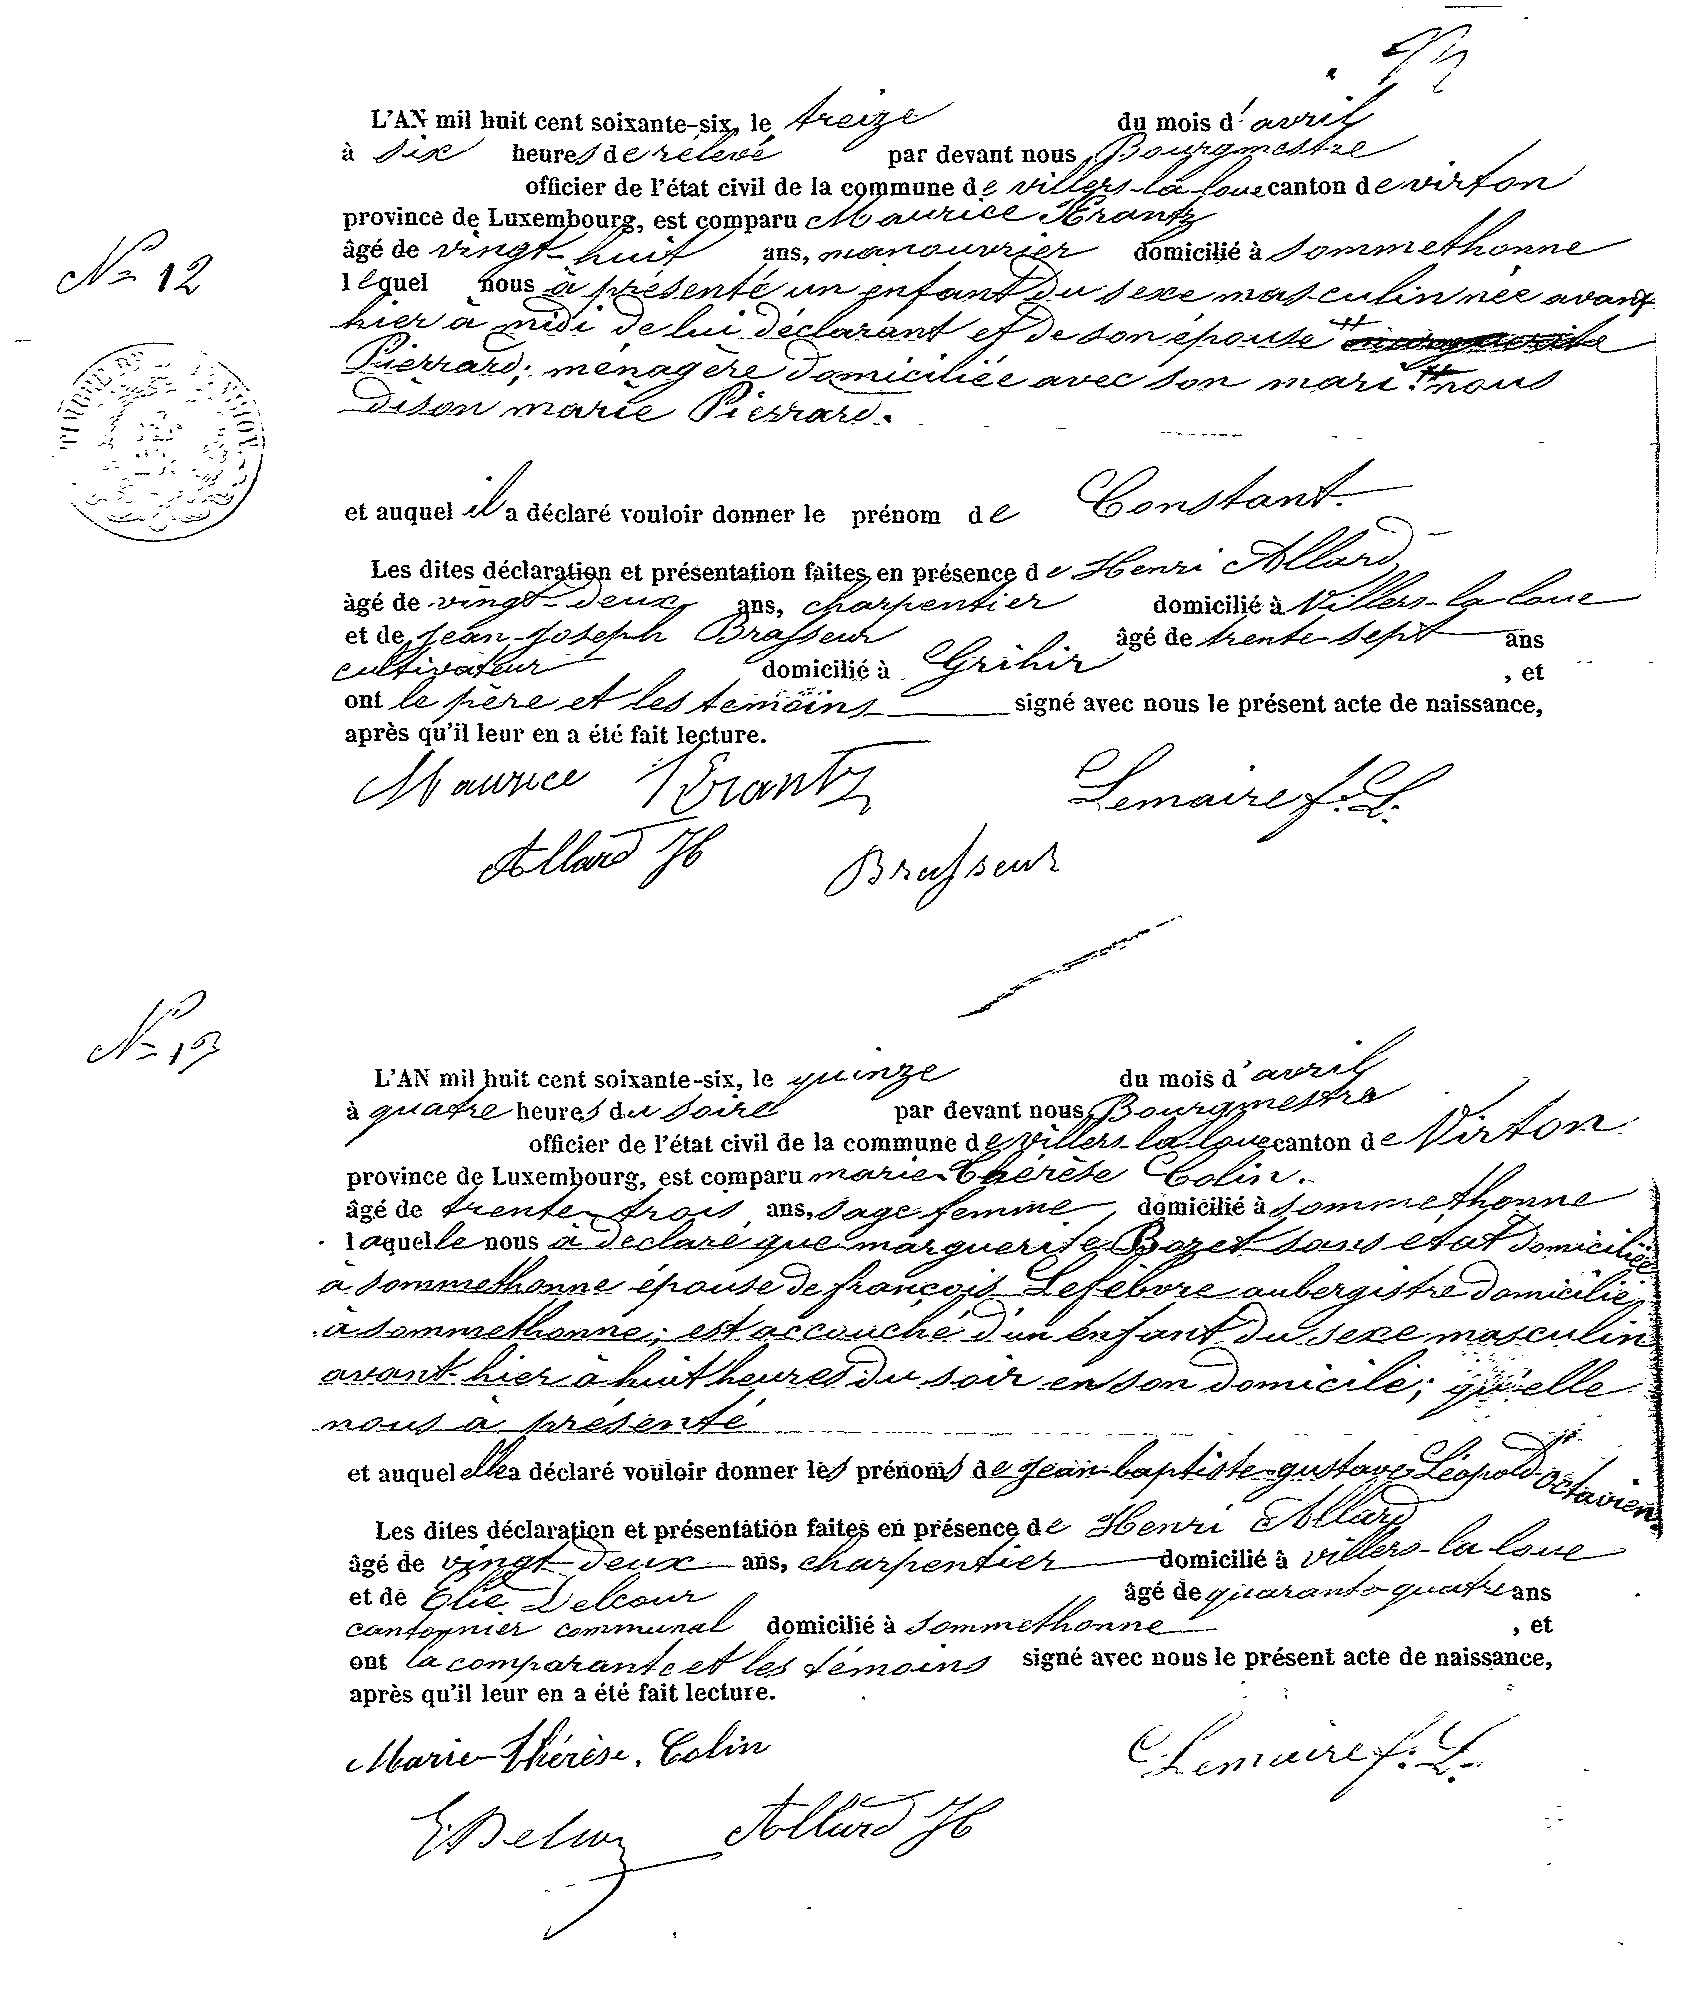 L'AN mil huit cent soixante-six, le treize du mois d'avril
à six heures de rélevé par devant nous, Bourgmestre
officier de l'état civil de la commune de villers-la-loue canton de virton
province de Luxembourg, est comparu Maurice Krantz
N° 12
âgé de vingt-huit ans, manouvrier domicilié à sommethonne
lequel nous à présenté un enfant du sexe masculin née avant
hier à midi de lui déclarant et de son épouse #
Pierrard; ménagère domiciliée avec son mari. # nous
dison marie Pierrard.
TIMBRE
et auquel il a déclaré vouloir donner le prénom de Constant.
Les dites déclaration et présentation faites en présence de Henri Allard
âgé de vingt-deux ans, charpentier domicilié à Villers-la-loue
et de Jean-Joseph Brasseur âgé de trente-sept ans
cultivateur domicilié à Grihir , et
ont le père et les temoins signé avec nous le présent acte de naissance,
après qu'il leur en a été fait lecture.
Maurice Krantz Lemaire f. L.
Allard H Brasseur
N° 13
L'AN mil huit cent soixante-six, le quinze du mois d'avril
à quatre heures du soire par devant nous, Bourgmestre
officier de l'état civil de la commune de villers-la-loue canton de Virton
province de Luxembourg, est comparu marie-Thérèse Colin.
âgé de trente-trois ans, sage femme, domicilié à sommethonne
laquelle nous à declaré que marguerite Bozet sans état domiciliée
à sommethonne épouse de françois Lefebvre aubergistre domicilié
à sommethonne; est accouché d'un enfant du sexe masculin
avant-hier à huit heures du soir en son domicile; qu'elle
nous à présenté
et auquel elle a déclaré vouloir donner les prénoms de Jean-baptiste-gustave-Léopold-Octavien.
Les dites déclaration et présentation faites en présence de Henri Allard
âgé de vingt-deux ans, charpentier domicilié à villers-la-loue
et de Elie Delcour âgé de quarante-quatre ans
cantonnier communal domicilié à sommethonne , et
ont la comparante et les témoins signé avec nous le présent acte de naissance,
après qu'il leur en a été fait lecture.
Marie-Thérèse. Colin Lemaire f. L.
E Delcour Allard H